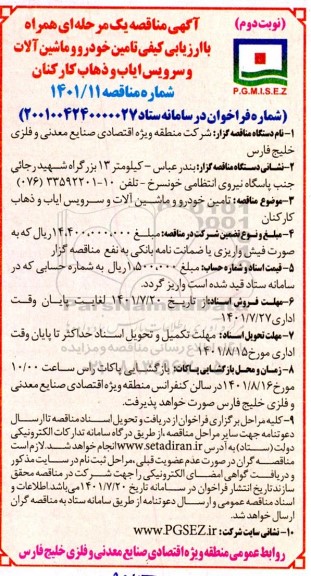 (نوبت دوم)
آگهی مناقصه یک مرحله ای همراه
با ارزیابی کیفی تامین خودرو و ماشین آلات
و سرویس ایاب و ذهاب کارکنان
شماره مناقصه ۱۴۰۱/۱۱
P.G.M.I.S.E.Z
(شماره فراخوان در سامانه ستاد ۲۰۰۱۰۰۴۲۴۰۰۰۰۰۲۷)
۱- نام دستگاه مناقصه گزار: شرکت منطقه ویژه اقتصادی صنایع معدنی و فلزی
خلیج فارس
۲- نشانی دستگاه مناقصه گزار: بندرعباس - کیلومتر ۱۳ بزرگراه شهید رجائی
جنب پاسگاه نیروی انتظامی خونسرخ - تلفن ۱۰-۳۳۵۹۲۲۰۱ (۰۷۶)
۳- موضوع مناقصه: تامین خودرو و ماشین آلات و سرویس ایاب و ذهاب
کارکنان
۴- مبلغ و نوع تضمین شرکت در مناقصه: مبلغ ۱۴.۴۰۰.۰۰۰.۰۰۰ ریال که به
صورت فیش واریزی یا ضمانت نامه بانکی به نفع مناقصه گزار
۵- قیمت اسناد و شماره حساب: مبلغ ۱.۵۰۰.۰۰۰ ریال به شماره حسابی که در
سامانه ستاد قید شده است واریز گردد.
۶- مهلت فروش اسناد: از تاریخ ۱۴۰۱/۷/۲۰ لغایت پایان وقت
اداری ۱۴۰۱/۷/۲۷
۷- مهلت تحویل اسناد: مهلت تکمیل و تحویل اسناد حداکثر تا پایان وقت
اداری مورخ ۱۴۰۱/۸/۱۵
۸- زمان و محل بازگشایی پاکات: بازگشایی پاکات راس ساعت ۱۰/۰۰
مورخ ۱۴۰۱/۸/۱۶ در سالن کنفرانس منطقه ویژه اقتصادی صنایع معدنی و
فلزی خلیج فارس صورت خواهد پذیرفت.
۹- کلیه مراحل برگزاری فراخوان از دریافت و تحویل اسناد مناقصه تا ارسال
دعوتنامه جهت سایر مراحل مناقصه، از طریق درگاه سامانه تدارکات الکترونیکی
دولت (ستاد) به آدرس www.setadiran.ir انجام خواهد شد. لازم است
مناقصه گران در صورت عدم عضویت قبلی، مراحل ثبت نام در سایت مذکور
و دریافت گواهی امضای الکترونیکی را جهت شرکت در مناقصه محقق
سازند تاریخ انتشار فراخوان در سامانه تاریخ ۱۴۰۱/۷/۲۰ می باشد. اطلاعات و
اسناد مناقصه عمومی و ارسال دعوتنامه از طریق سامانه ستاد به مناقصه گران
ارسال خواهد شد.
۱۰- نشانی سایت شرکت: www.PGSEZ.ir
روابط عمومی منطقه ویژه اقتصادی صنایع معدنی و فلزی خلیج فارس